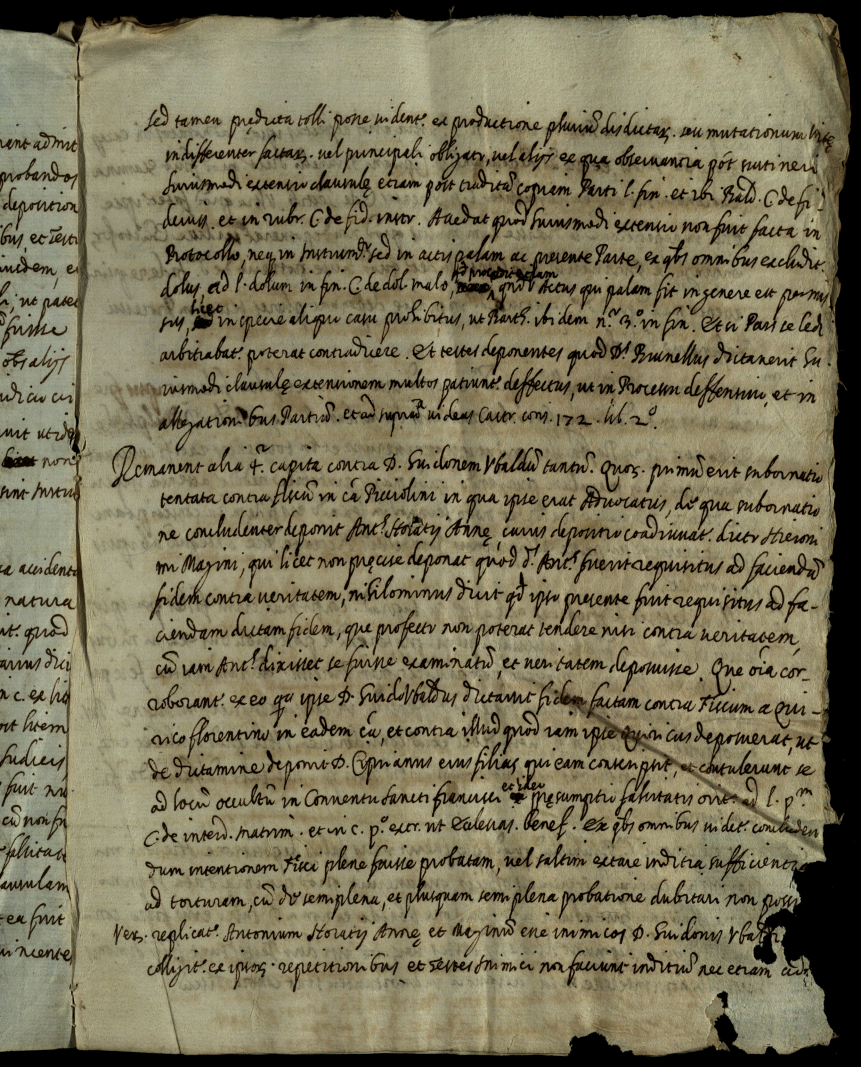 sed tamen prędicta tolli posse vident.r ex productione pluriũ disdictar. seu mutationum
indifferenter factar. vel principali obligato, vel alijs ex qua observancia põt sustineri
huiusmodi extensio clausulę etiam post traditã copiam Parti l. fin. et ibi Bald. C. de fi
deiuss. et in rubr. C. de fid. instr. Accedat quod huiusmodi extensio non fuit facta in
Protocollo, neq. in Instrum.to sed in actis palam ac presente Parte, ex qbs omnibus excludit.r
dolus ad l. dolum in fin. C. de dol. malo, quod Actus qui palam fit in genere est permis
sus, licet in specie aliquo casu prohibitus, ut Bart. ibidem n.o 3.o in fin. Et si Pars se ledi
arbitrabat.r poterat contradicere. Et testes deponentes quod D.s Brunellus dictaverit hu
iusmodi clausulę extensionem multos patiunt.r deffectus, ut in Processu deffensivo, et in
allegationibus Partiũ. et ad supradã videas Castr. cons. 172. lib. 2.o
Remanent alia 4.r capita contra D. Guidonem Ubaldũ tantũ. Quor. primũ erit subornatio
tentata contra fiscũ in cã Picciolini in qua ipse erat Advocatus, de qua subornatio
ne concludenter deponit Ant.s Horatij Annę, cuius depositio coadiuvat.r dicto Hieroni
mi Magini, qui licet non pręcise deponat quod d.s Ant.s fuerit requisitus ad faciendã
fidem contra veritatem, nihilominus dicit qd ipso presente fuit requisitus ad fa-
ciendam dictam fidem, que profecto non poterat tendere nisi contra veritatem
cũ iam Ant.s dixisset se fuisse examinatũ, et veritatem deposuisse. Que oĩa cor_
roborant.r ex eo qa ipse D. Guidoubaldus dictavit fidem factam contra Fiscum a Qui-
rico florentino in eadem cã, et contra illud quod iam ipse Quiricus deposuerat, ut
de dictamine deponit D. Cyprianus eius filius, qui eam conscripsit, et contulerunt se
ad locũ occultũ in Conventu Sancti francisci et ideo pręsumptio falsitatis orit.r ad l. p.m
C. de interd. matrim. et in c. p.o extr. ut Eccles. benef. Ex qbs omnibus videt.r concluden
dum intentionem Fisci plene fuisse probatam, vel saltim extare inditia sufficientia
ad torturam, cũ de semiplena, et plusquam semiplena probatione dubitari non possit
Vers. replicat.r Antonium Horatij Annę et Maginũ esse inimicos D. Guidonis Ubaldi
colligit.r ex ipsor. repetitionibus et testes inimici non faciunt inditiũ nec etiam